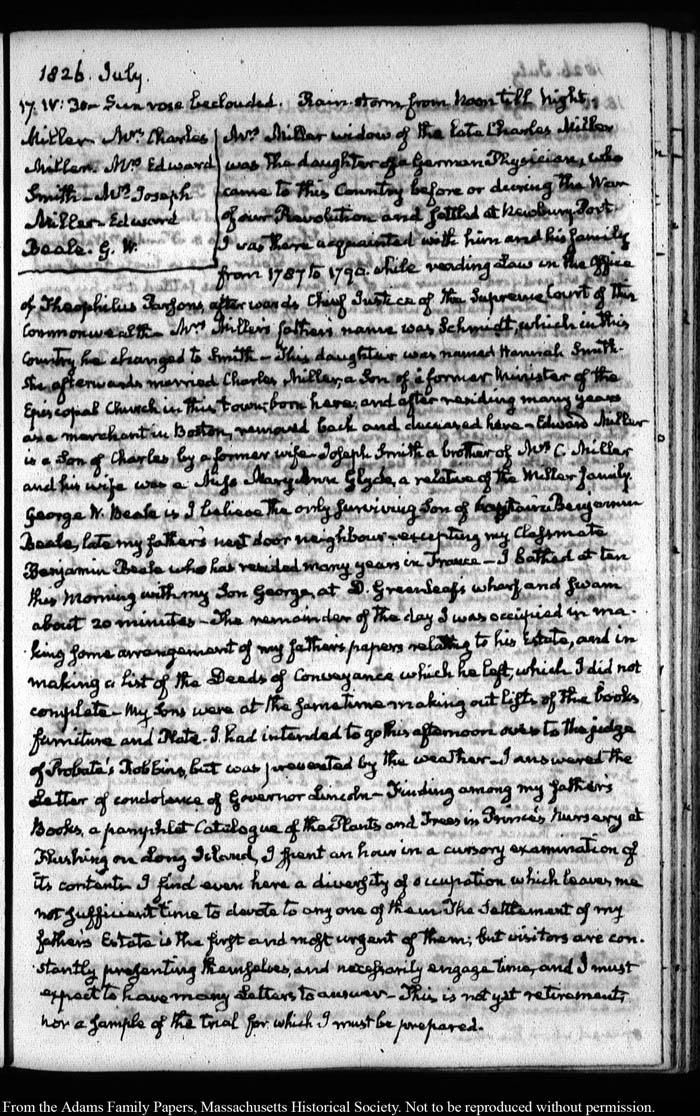 1826. July.
17. IV: 30 - Sun rose beclouded. Rain-storm from Noon till Night,
Miller Mrs. Charles
Miller. Mrs. Edward
Smith - Mrs. Joseph
Miller Edward
Beale. G. W.
Mrs. Miller widow of the late Charles Miller
was the daughter of a German Physician, who
came to this Country before or during the War
of our Revolution and settled at Newbury Port
I was there acquainted with him and his family
from 1787 to 1790. while reading Law in the Office
of Theophilus Parsons, afterwards Chief Justice of the Supreme Court of this
Commonwealth - Mrs. Miller's father's name was Schmidt, which in this
Country he changed to Smith - This daughter was named Hannah Smith.
She afterwards married Charles Miller, a Son of a former Minister of the
Episcopal Church in this town; born here; and after residing many years
as a merchant in Boston, removed back and deceased here - Edward Miller
is a Son of Charles by a former wife - Joseph Smith a brother of Mrs. C. Miller
and his wife was a Miss Mary Ann Glyde, a relative of the Miller family.
George W. Beale is I believe the only surviving Son of Captain Benjamin
Beale, late my father's next door neighbour - excepting my Classmate
Benjamin Beale who has resided many years in France - I bathed at ten
this Morning with my Son George, at D. Greenleaf's wharf and swam
about 20 minutes - The remainder of the day I was occupied in ma-
-king some arrangement of my father's papers relating to his Estate, and in
making a list of the Deeds of Conveyance which he left, which I did not
complete - My Sons were at the same time making out lists of the books
furniture and Plate. I had intended to go this afternoon over to the judge
of Probate's Robbins, but was prevented by the weather - I answered the
Letter of condolence of Governor Lincoln - Finding among my father's
Books, a pamphlet Catalogue of the Plants and Trees in Prince's Nursery at
Flushing on Long Island, I spent an hour in a cursory examination of
its contents I find even here a diversity of occupation which leaves me
not sufficient time to devote to any one of them The Settlement of my
father's Estate is the first and most urgent of them; but visitors are con-
-stantly presenting themselves, and necessarily engage time, and I must
expect to have many Letters to answer - This is not yet retirement;
nor a sample of the trial for which I must be prepared.
From the Adams Family Papers, Massachusetts Historical Society. Not to be reproduced without permission.